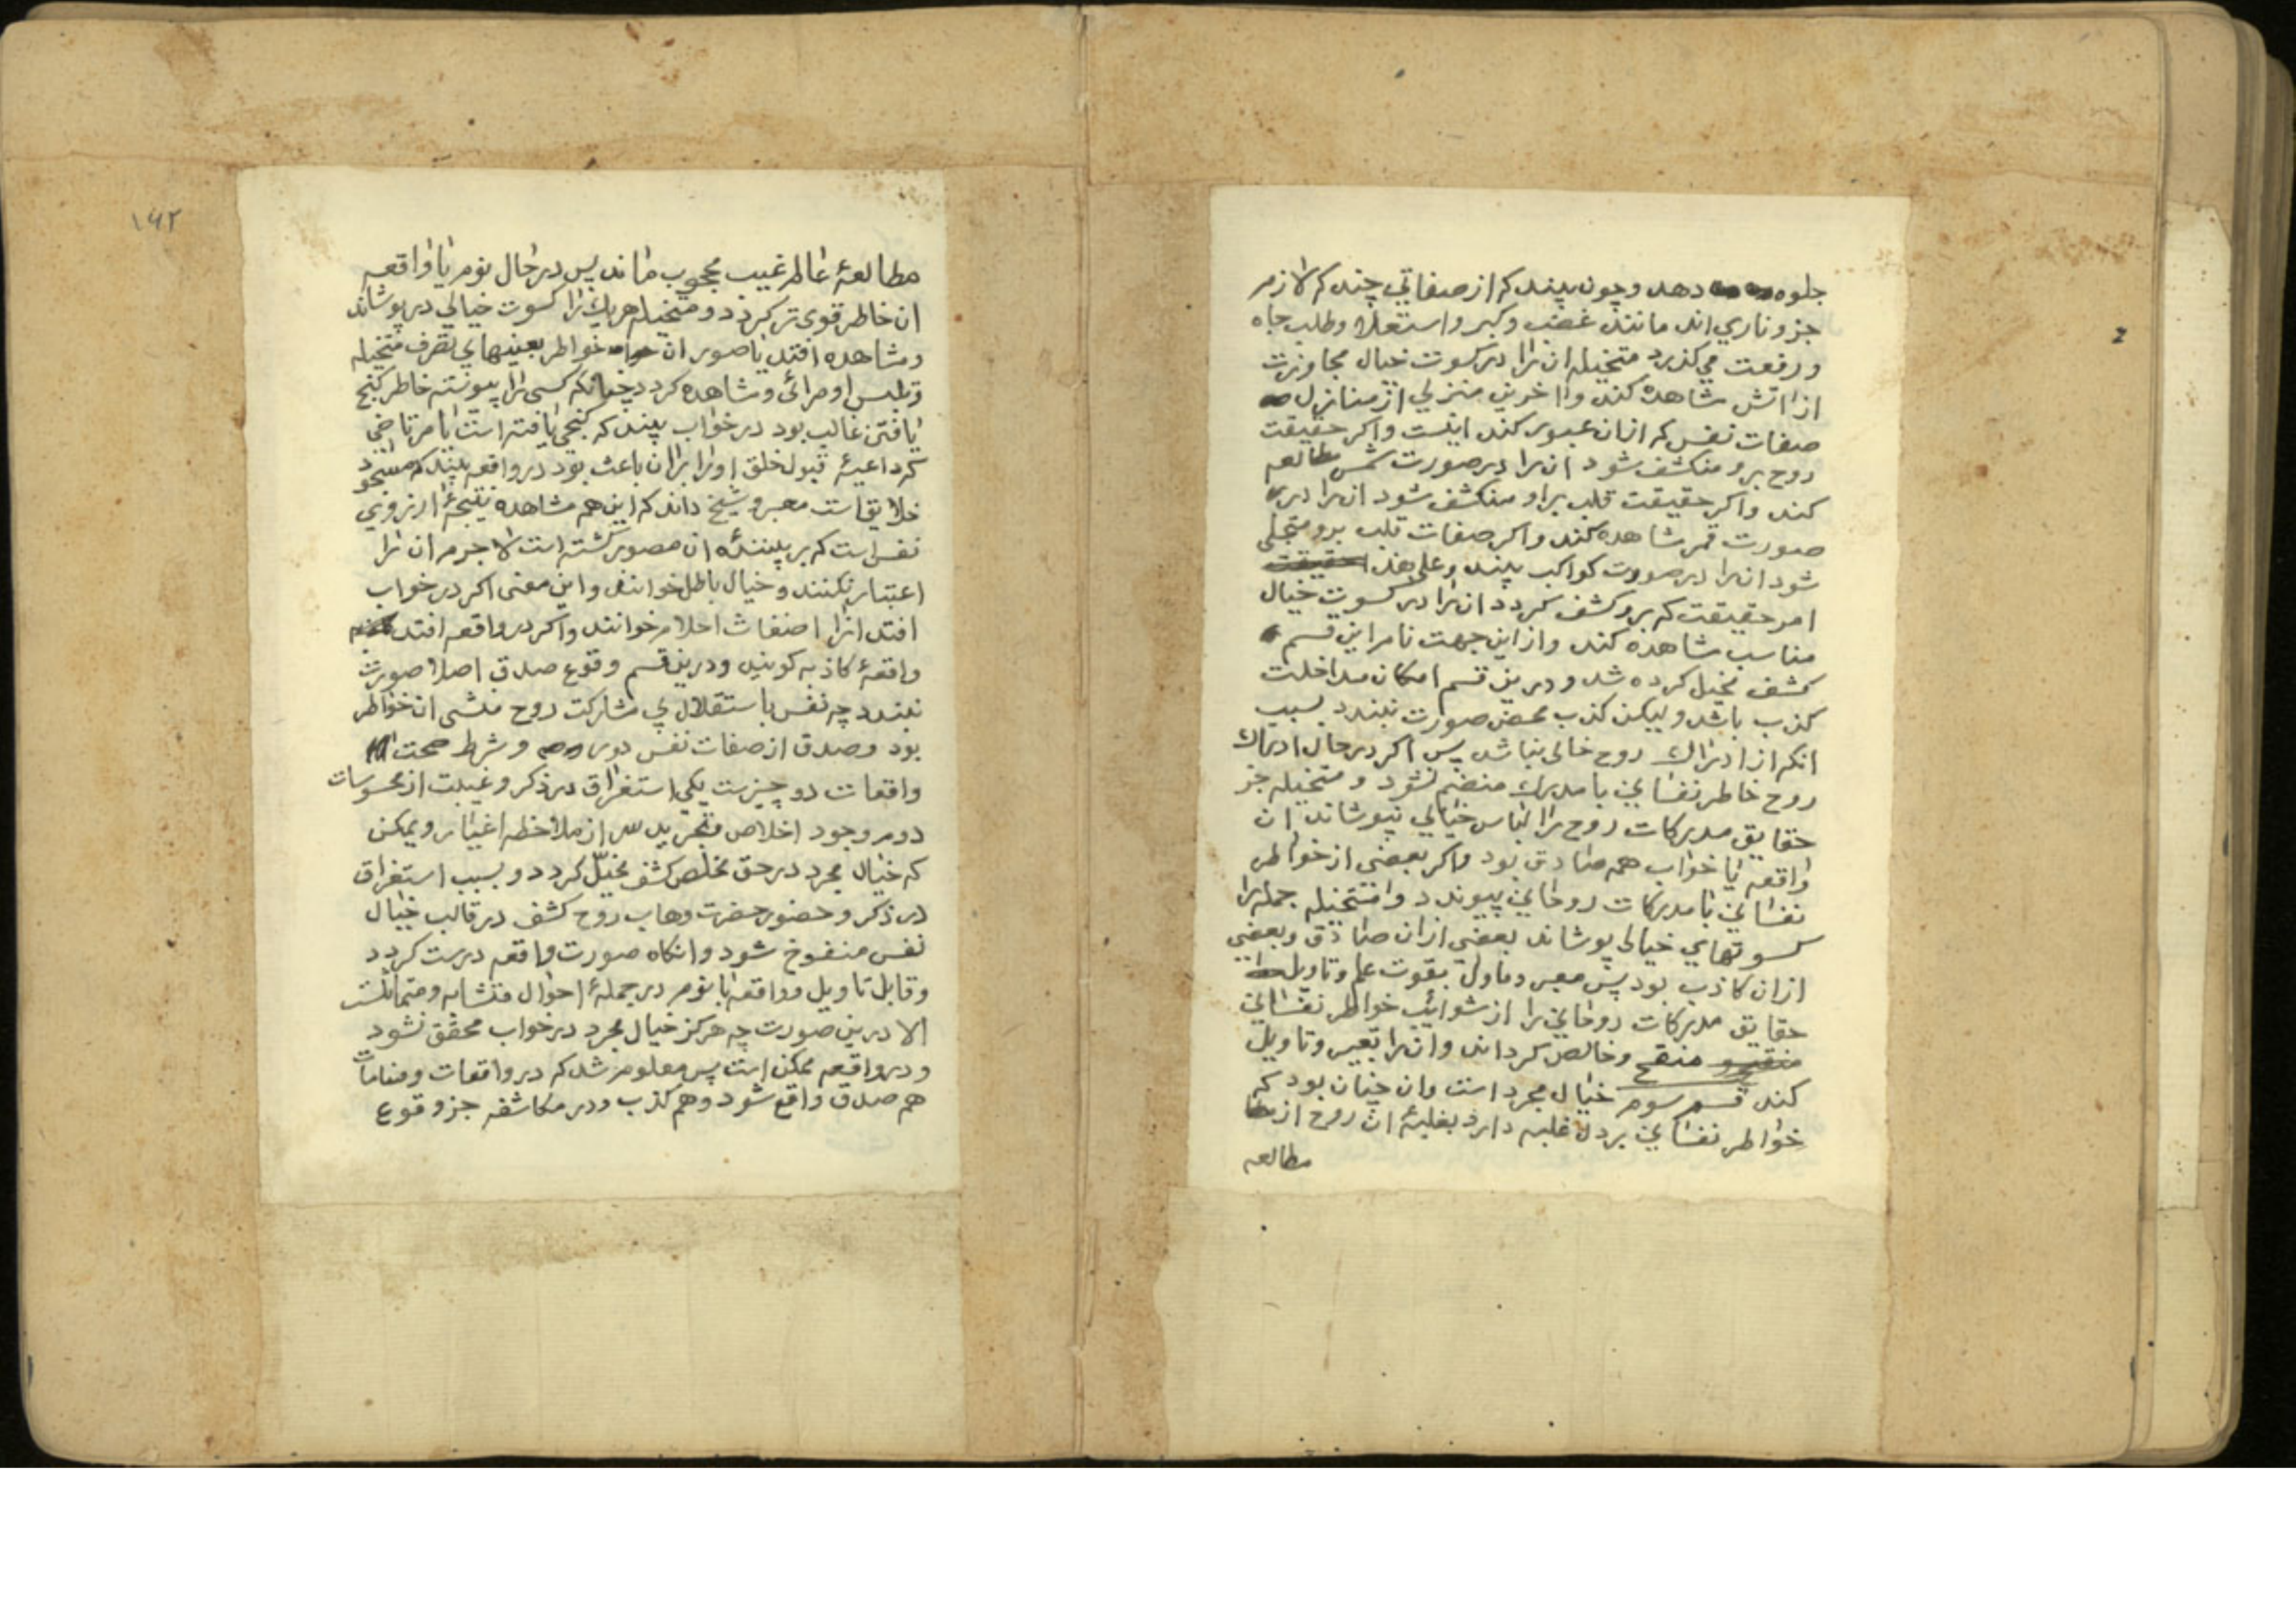 جلوه دهد وچون بیند که از صفاتي چند که لازم
جزو ناري اند مانند غضب وکبر و استعلا وطلب جاه
و رفعت مي کذرد متخیله ان را در کسوت خیال مجاوزت
از اتش مشاهده کند و اخرین منزلي از منازل
صفات نفس که ازان عبور کند اینست واکر حقیقت
روح برو منکشف شود ان را در صورت شمس مطالعه
کند واکر حقیقت قلب براو منکشف شود ان را در
صورت قمر مشاهده کند واکر صفات قلب برو متجلی
شود ان را در صورت کواکب بیند وعلی هذا
امر حقیقت که برو کشف کردد ان را در کسوت خیال
مناسب مشاهده کند واز این جهت نام این قسم
کشف مخیل کرده شد و درین قسم امکان مداخلت
کذب باشد ولیکن کذب محض صورت نبندد بسبب
انکه از ادراك روح خالی نباشد پس اکر در حال ادراك
روح خاطر نفساني با مدرك منضم نشود و متخیله جز
حقایق مدرکات روح را لباس خیالي نپوشاند ان
واقعه یا خواب همه صادق بود واکر بعضی از خواطر
نفساني با مدرکات روحاني پیوندد و متخیله جمله را
کسوتهاي خیالی پوشاند بعضی ازان صادق وبعضي
ازان کاذب بود پس معبر وماول بقوت علم وتاویل
حقایق مدرکات روحاني را از شوائب خواطر نفساني
منقح وخالص کرداند وان را تعبیر وتاویل
کند قسم سوم خیال مجرد است وان چنان بود که
خواطر نفساني بر دل غلبه دارد بغلبۀ ان روح از
مطالعه
2
۱۶۲
مطالعۀ عالم غیب محجوب ماند پس در حال نوم یا واقعه
ان خاطر قوی تر کردد و متخیله هریك را کسوت خیالي در پوشاند
ومشاهده افتد یا صور ان خواطر بعینها بي تصرف متخیله
وتلبیس او مرائی ومشاهده کردد چنانکه کسی را پیوسته خاطر کنج
یافتن غالب بود در خواب بیند که کنجی یافته است یا مرتاضی
که داعیۀ قبول خلق او را بران باعث بود در واقعه بیند که مسجود
خلایق است معبر و شیخ داند که این همه مشاهده نتیجۀ ارزوي
نفس است که بر بینندۀ ان مصور کشته است لا جرم ان را
اعتبار نکنند و خیال باطل خوانند واین معنی اکر در خواب
افتد انرا اضغاث احلام خوانند واکر در واقعه افتد
واقعۀ کاذبه کویند ودرین قسم وقوع صدق اصلا صورت
نبندد چه نفس باستقلال بي مشارکت روح منشی ان خواطر
بود وصدق از صفات نفس دور و شرط صحت
واقعات دو چیزست یکی استغراق در ذکر وغیبت از محسوسات
دوم وجود اخلاص وتجرید سر از ملاحظه اغیار ویمکن
که خیال مجرد در حق مخلص کشف مخیّل کردد و بسبب استغراق
در ذکر وحضور حضرت وهاب روح کشف در قالب خیال
نفس منفوخ شود وانکاه صورت واقعه درست کردد
وقابل تاویل وواقعه با نوم در جملۀ احوال متشابه ومتماثلست
الا درین صورت چه هرکز خیال مجرد در خواب محقق نشود
ودر واقعه ممکن است پس معلوم شد که در واقعات ومنامات
هم صدق واقع شود وهم کذب ودر مکاشفه جز وقوع